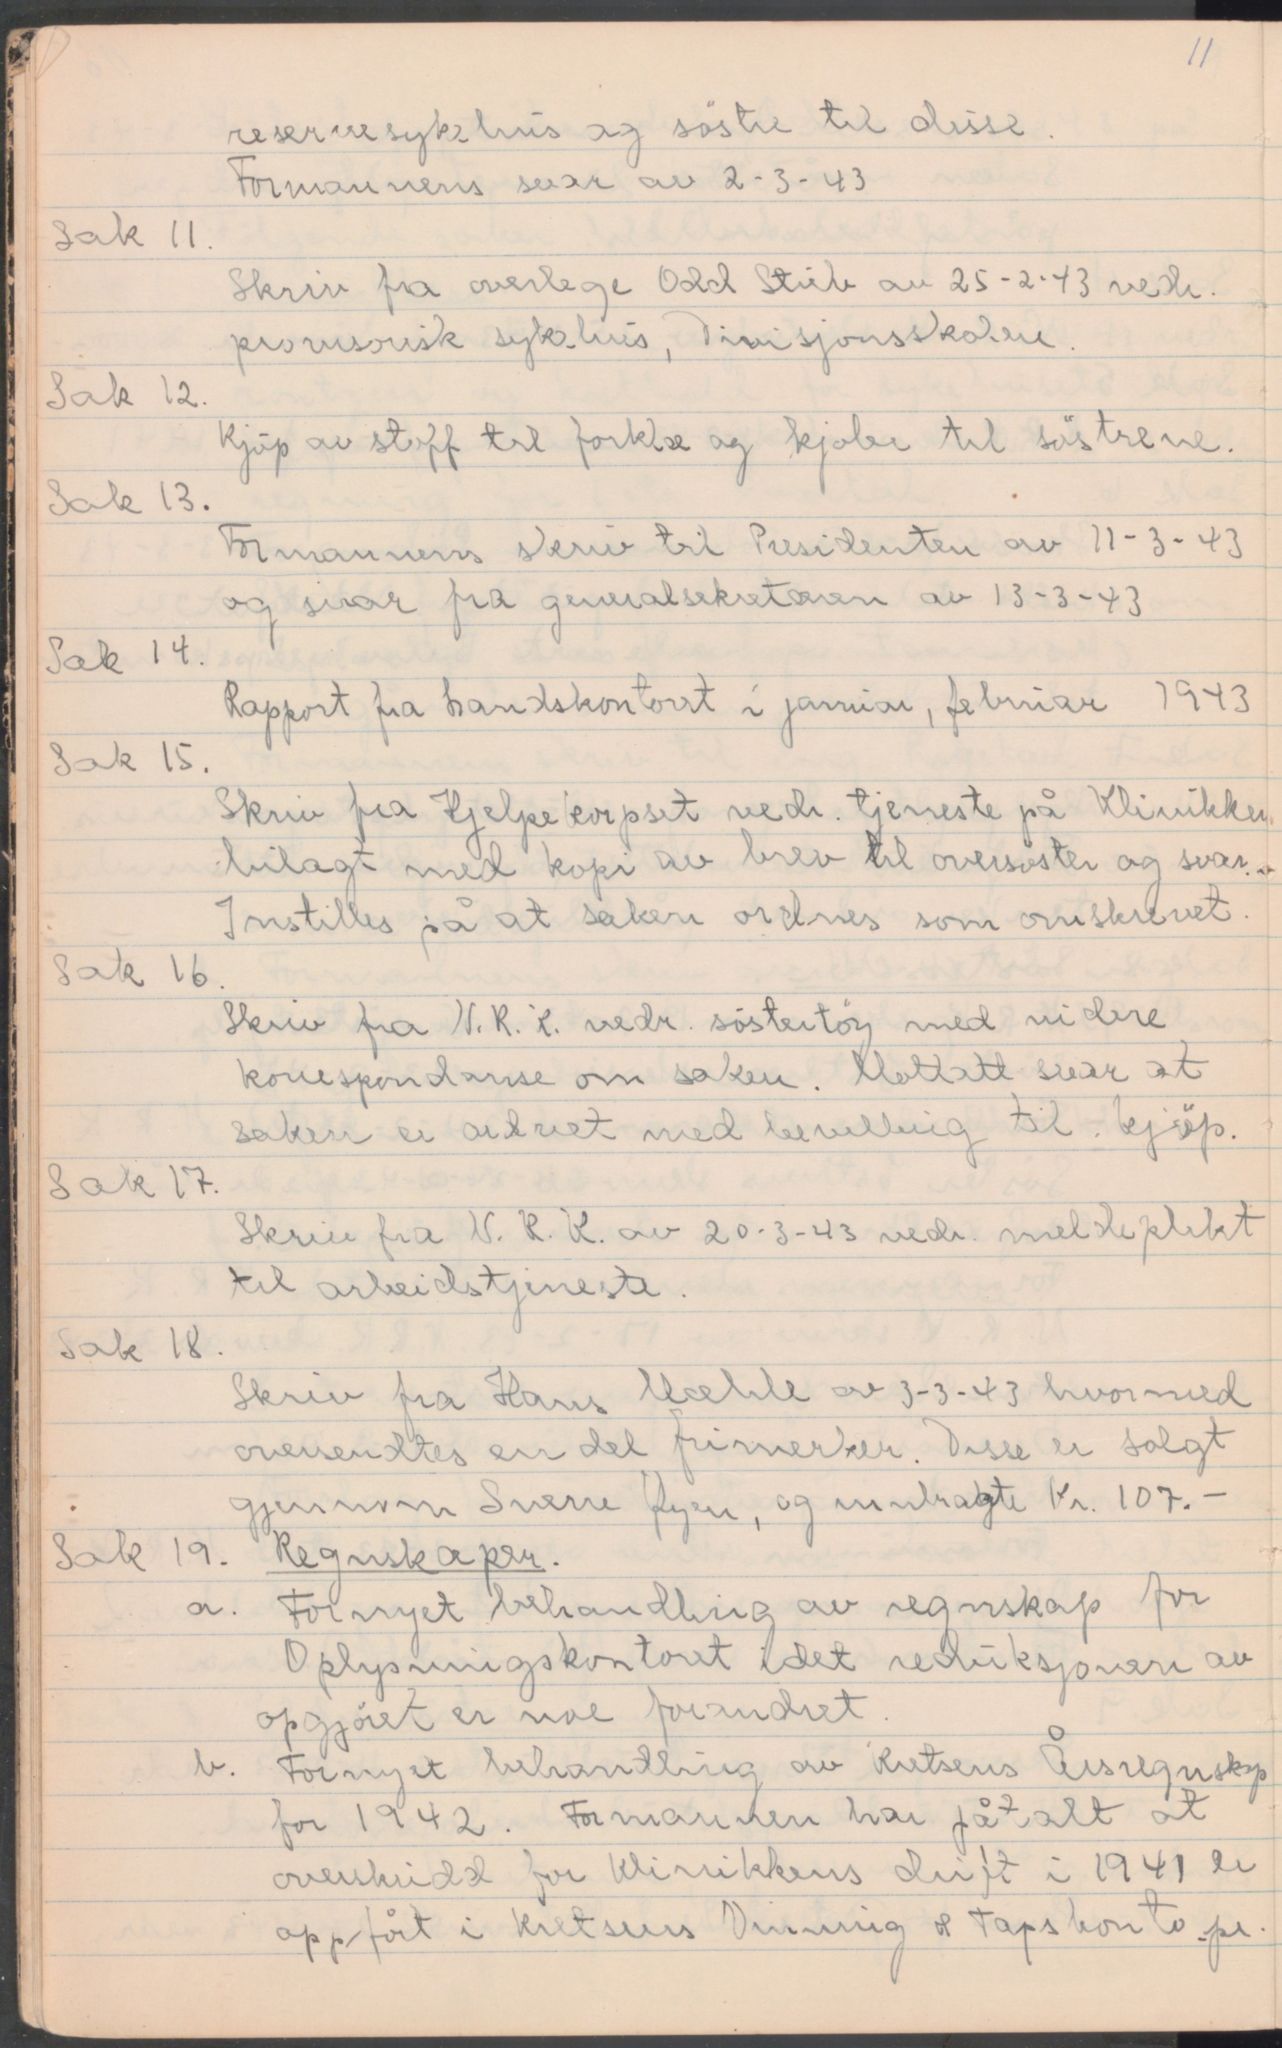 11
reservesykehus og söstre til disse.
Formannens svar av 2-3-43
Sak 11.
Skriv fra overlege Odd Stub av 25-2-43 vedr.
provisorisk sykehus, Divisjonsskolen.
Sak 12.
Kjöp av stoff til forklæ og kjoler til söstrene.
Sak 13.
Formannens skriv til Presidenten av 11-3-43
og svar fra generalsekretæren av 13-3-43
Sak 14.
Rapport fra Landskontoret i januar, februar 1943
Sak 15.
Skriv fra Hjelpekorpset vedr. tjeneste på Klinikken
bilagt med kopi av brev til oversöster og svar.
Instilles på at saken ordnes som omskrevet.
Sak 16.
Skriv fra N.R.K. vedr. söstertöy med videre
korrespondanse om saken. Mottatt svar at
saken er ordnet med bevilling til kjöp.
Sak 17.
Skriv fra N.R.K. av 20-3-43 vedr. meldeplikt
til arbeidstjeneste.
Sak 18.
Skriv fra Hans av 3-3-43 hvormed
oversendtes en del frimerker. Disse er solgt
gjennom Sverre Ryen, og innbragte Kr. 107.-
Sak 19. Regnskaper.
a. Fornyet behandling av regnskap for
Oplysningskontoret idet reduksjonen av
opgjöret er noe forandret.
b. Fornyet behandling av Kretsens Årsregnskap
for 1942. Formannen har påtalt at
overskudd for Klinikkens drift i 1941 er
oppfört i Kretsens Vinning & Tapskonto pr.